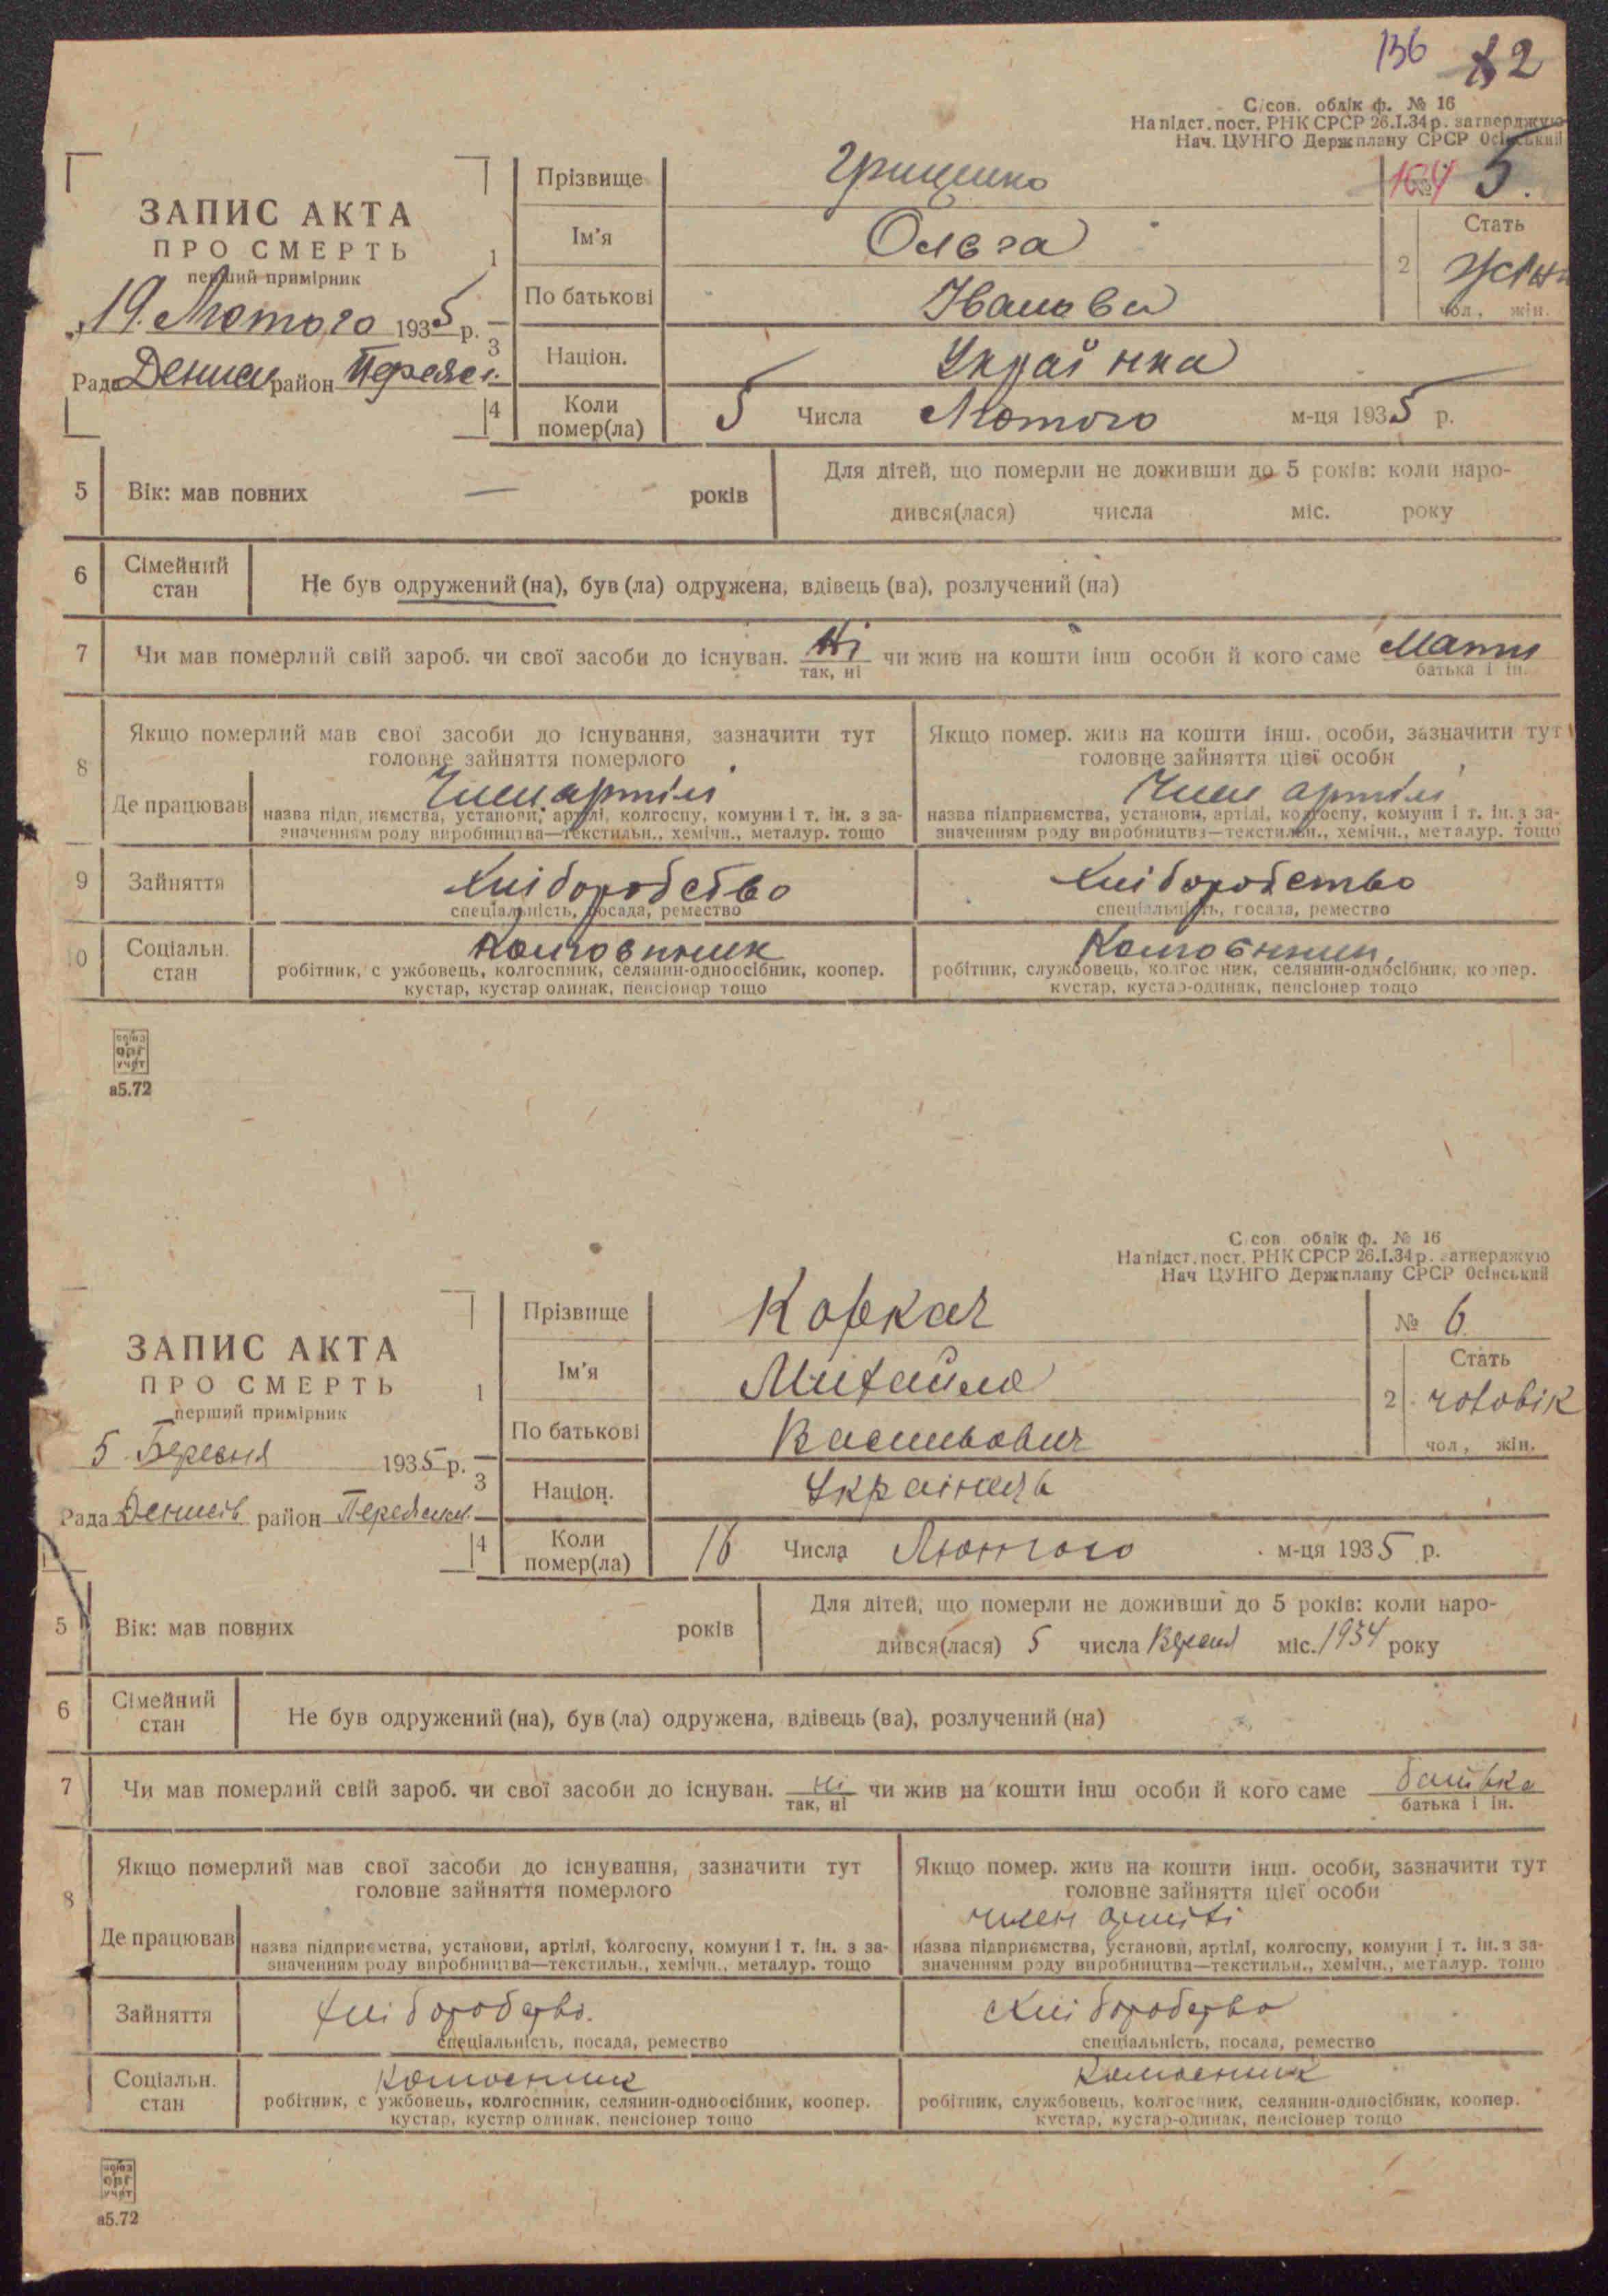 136 82
С/сов. облік ф. № 16
На підст. пост. РНК СРСР 26.І.34 р. затверджую
Нач. ЦУНГО Держплану СРСР Осінський
ЗАПИС АКТА
ПРО СМЕРТЬ
перший примірник
19. Лютого 1935 р.
Рада район
1 Прізвище Грицинко
№ 5.
Ім'я Ольга
По батькові Івановн
2 Стать жін
чол., жін.
3 Націон. Українка
4 Коли помер(ла) 5 Числа Лютого м-ця 1935 р.
5 Вік: мав повних — років
Для дітей, що померли не доживши до 5 років: коли наро-
дився(лася) числа міс. року
6 Сімейний стан Не був одружений (на), був (ла) одружена, вдівець (ва), розлучений (на)
7 Чи мав померлий свій зароб. чи свої засоби до існуван. Ні чи жив на кошти інш особи й кого саме
так, ні батька і ін.
8 Якщо померлий мав свої засоби до існування, зазначити тут
головне зайняття померлого
Якщо помер. жив на кошти інш. особи, зазначити тут
головне зайняття цієї особи
Де працював Член артілі
назва підприємства, установи, артілі, колгоспу, комуни і т. ін. з за-
значенням роду виробництва—текстильн., хемічн., металур. тощо
Член артілі
назва підприємства, установи, артілі, колгоспу, комуни і т. ін. з за-
значенням роду виробництва—текстильн., хемічн., металур. тощо
9 Зайняття Хліборобство
спеціальність, посада, ремество
Хліборобство
спеціальність, посада, ремество
10 Соціальн. стан
робітник, службовець, колгоспник, селянин-одноосібник, коопер.
кустар, кустар одинак, пенсіонер тощо
робітник, службовець, колгоспник, селянин-одноосібник, коопер.
кустар, кустар-одинак, пенсіонер тощо
союз
орг
учёт
а5.72
С/сов. облік ф. № 16
На підст. пост. РНК СРСР 26.І.34 р. затверджую
Нач ЦУНГО Держплану СРСР Осінський
ЗАПИС АКТА
ПРО СМЕРТЬ
перший примірник
5 Березня 1935 р.
Рада район
1 Прізвище Коркач
№ 6
Ім'я Михайло
По батькові Васильович
2 Стать чоловік
чол., жін.
3 Націон. Українець
4 Коли помер(ла) 16 Числа Лютого м-ця 1935 р.
5 Вік: мав повних років
Для дітей, що померли не доживши до 5 років: коли наро-
дився(лася) 5 числа міс. 1934 року
6 Сімейний стан Не був одружений (на), був (ла) одружена, вдівець (ва), розлучений (на)
7 Чи мав померлий свій зароб. чи свої засоби до існуван. ні чи жив на кошти інш особи й кого саме батька
так, ні батька і ін.
8 Якщо померлий мав свої засоби до існування, зазначити тут
головне зайняття померлого
Якщо помер. жив на кошти інш. особи, зазначити тут
головне зайняття цієї особи
Де працював
назва підприємства, установи, артілі, колгоспу, комуни і т. ін. з за-
значенням роду виробництва—текстильн., хемічн., металур. тощо
член артілі
назва підприємства, установи, артілі, колгоспу, комуни і т. ін. з за-
значенням роду виробництва—текстильн., хемічн., металур. тощо
Зайняття Хліборобство.
спеціальність, посада, ремество
Хліборобство
спеціальність, посада, ремество
Соціальн. стан
робітник, службовець, колгоспник, селянин-одноосібник, коопер.
кустар, кустар одинак, пенсіонер тощо
робітник, службовець, колгоспник, селянин-одноосібник, коопер.
кустар, кустар-одинак, пенсіонер тощо
союз
орг
учёт
а5.72